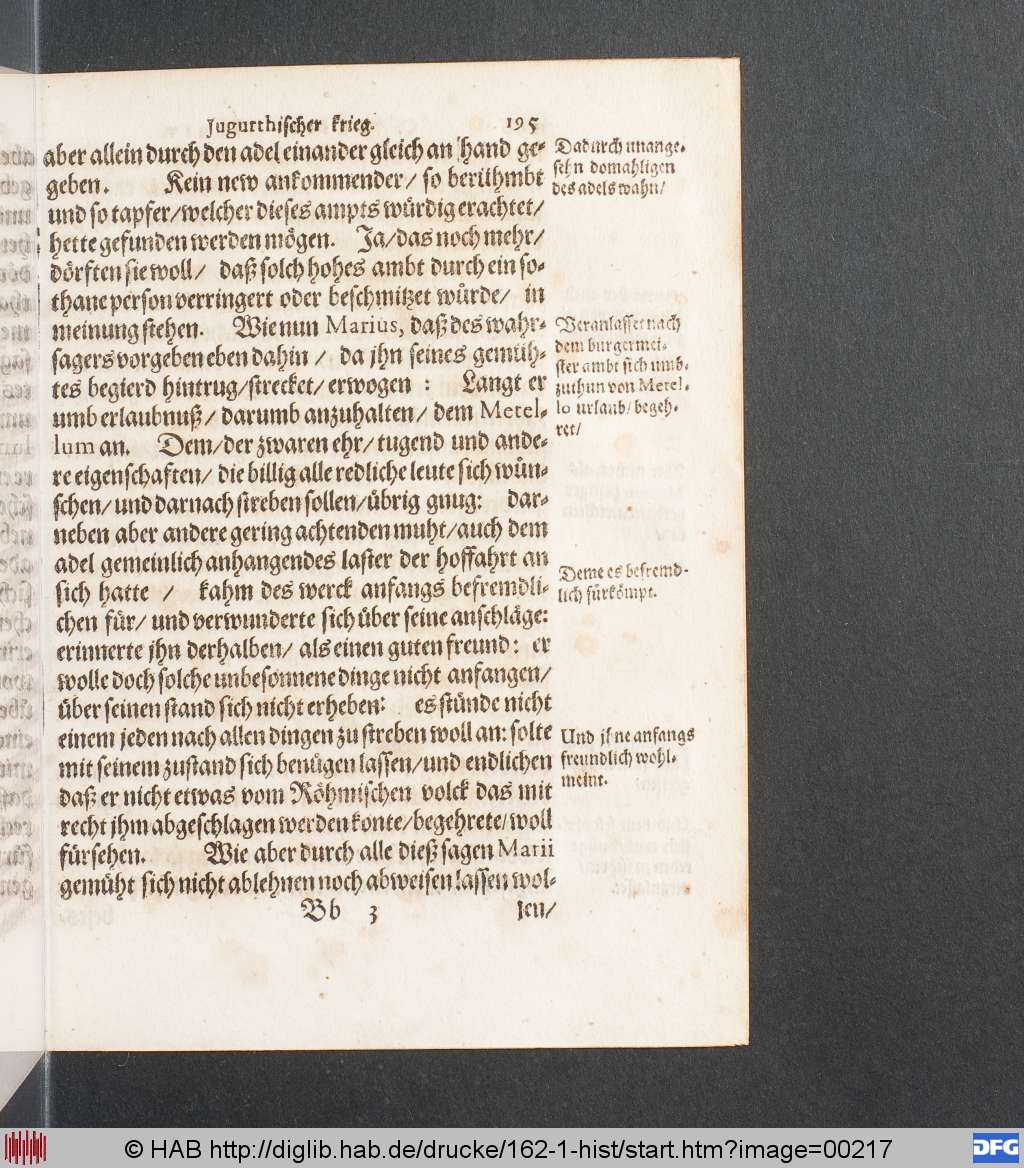 Jugurthischer krieg. 195
aber allein durch den adel einander gleich an hand ge-
geben. Kein new ankommender/ so berühmbt
und so tapfer/welcher dieses ampts würdig erachtet/
hette gefunden werden mögen. Ja/das noch mehr/
dörften sie woll/ daß solch hohes ambt durch ein so-
thane person verringert oder beschmitzet würde/ in
meinung stehen. Wie nun Marius, daß des wahr-
sagers vorgeben eben dahin / da jhn seines gemüh-
tes begierd hintrug/strecket/erwogen : Langt er
umb erlaubnuß/ darumb anzuhalten/ dem Metel-
lum an. Dem/der zwaren ehr/tugend und ande-
re eigenschaften/ die billig alle redliche leute sich wün-
schen/und darnach streben sollen/übrig gnug: dar-
neben aber andere gering achtenden muht/auch dem
adel gemeinlich anhangendes laster der hoffahrt an
sich hatte / kahm des werck anfangs befremdli-
chen für/ und verwunderte sich über seine anschläge:
erinnerte jhn derhalben/ als einen guten freund: er
wolle doch solche unbesonnene dinge nicht anfangen/
über seinen stand sich nicht erheben: es stünde nicht
einem jeden nach allen dingen zu streben woll an: solte
mit seinem zustand sich benügen lassen/und endlichen
daß er nicht etwas vom Röhmischen volck das mit
recht jhm abgeschlagen werden konte/begehrete/woll
fürsehen. Wie aber durch alle dieß sagen Marii
gemüht sich nicht ablehnen noch abweisen lassen wol-
Bb 3 len/
Dadurch unange-
sehn domahligen
des adels wahn/
Veranlasset nach
dem burgermei-
ster ambt sich umb-
zuthun von Metel-
lo urlaub/begeh-
ret/
Deme es befremd-
lich fürkömpt.
Und jhne anfangs
freundlich wohl-
meint.
© HAB http://diglib.hab.de/drucke/162-1-hist/start.htm?image=00217
DFG